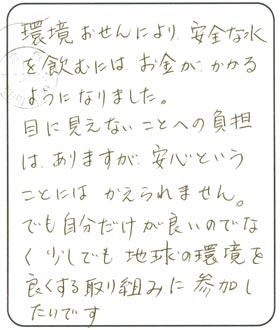 環境おせんにより、安全な水
を飲むには、お金が、かかる
ようになりました。
目に見えないことへの負担
は、ありますが、安心という
ことには かえられません。
でも自分だけが良いのでな
く 少しでも 地球の環境を
良くする取り組みに 参加し
たいです